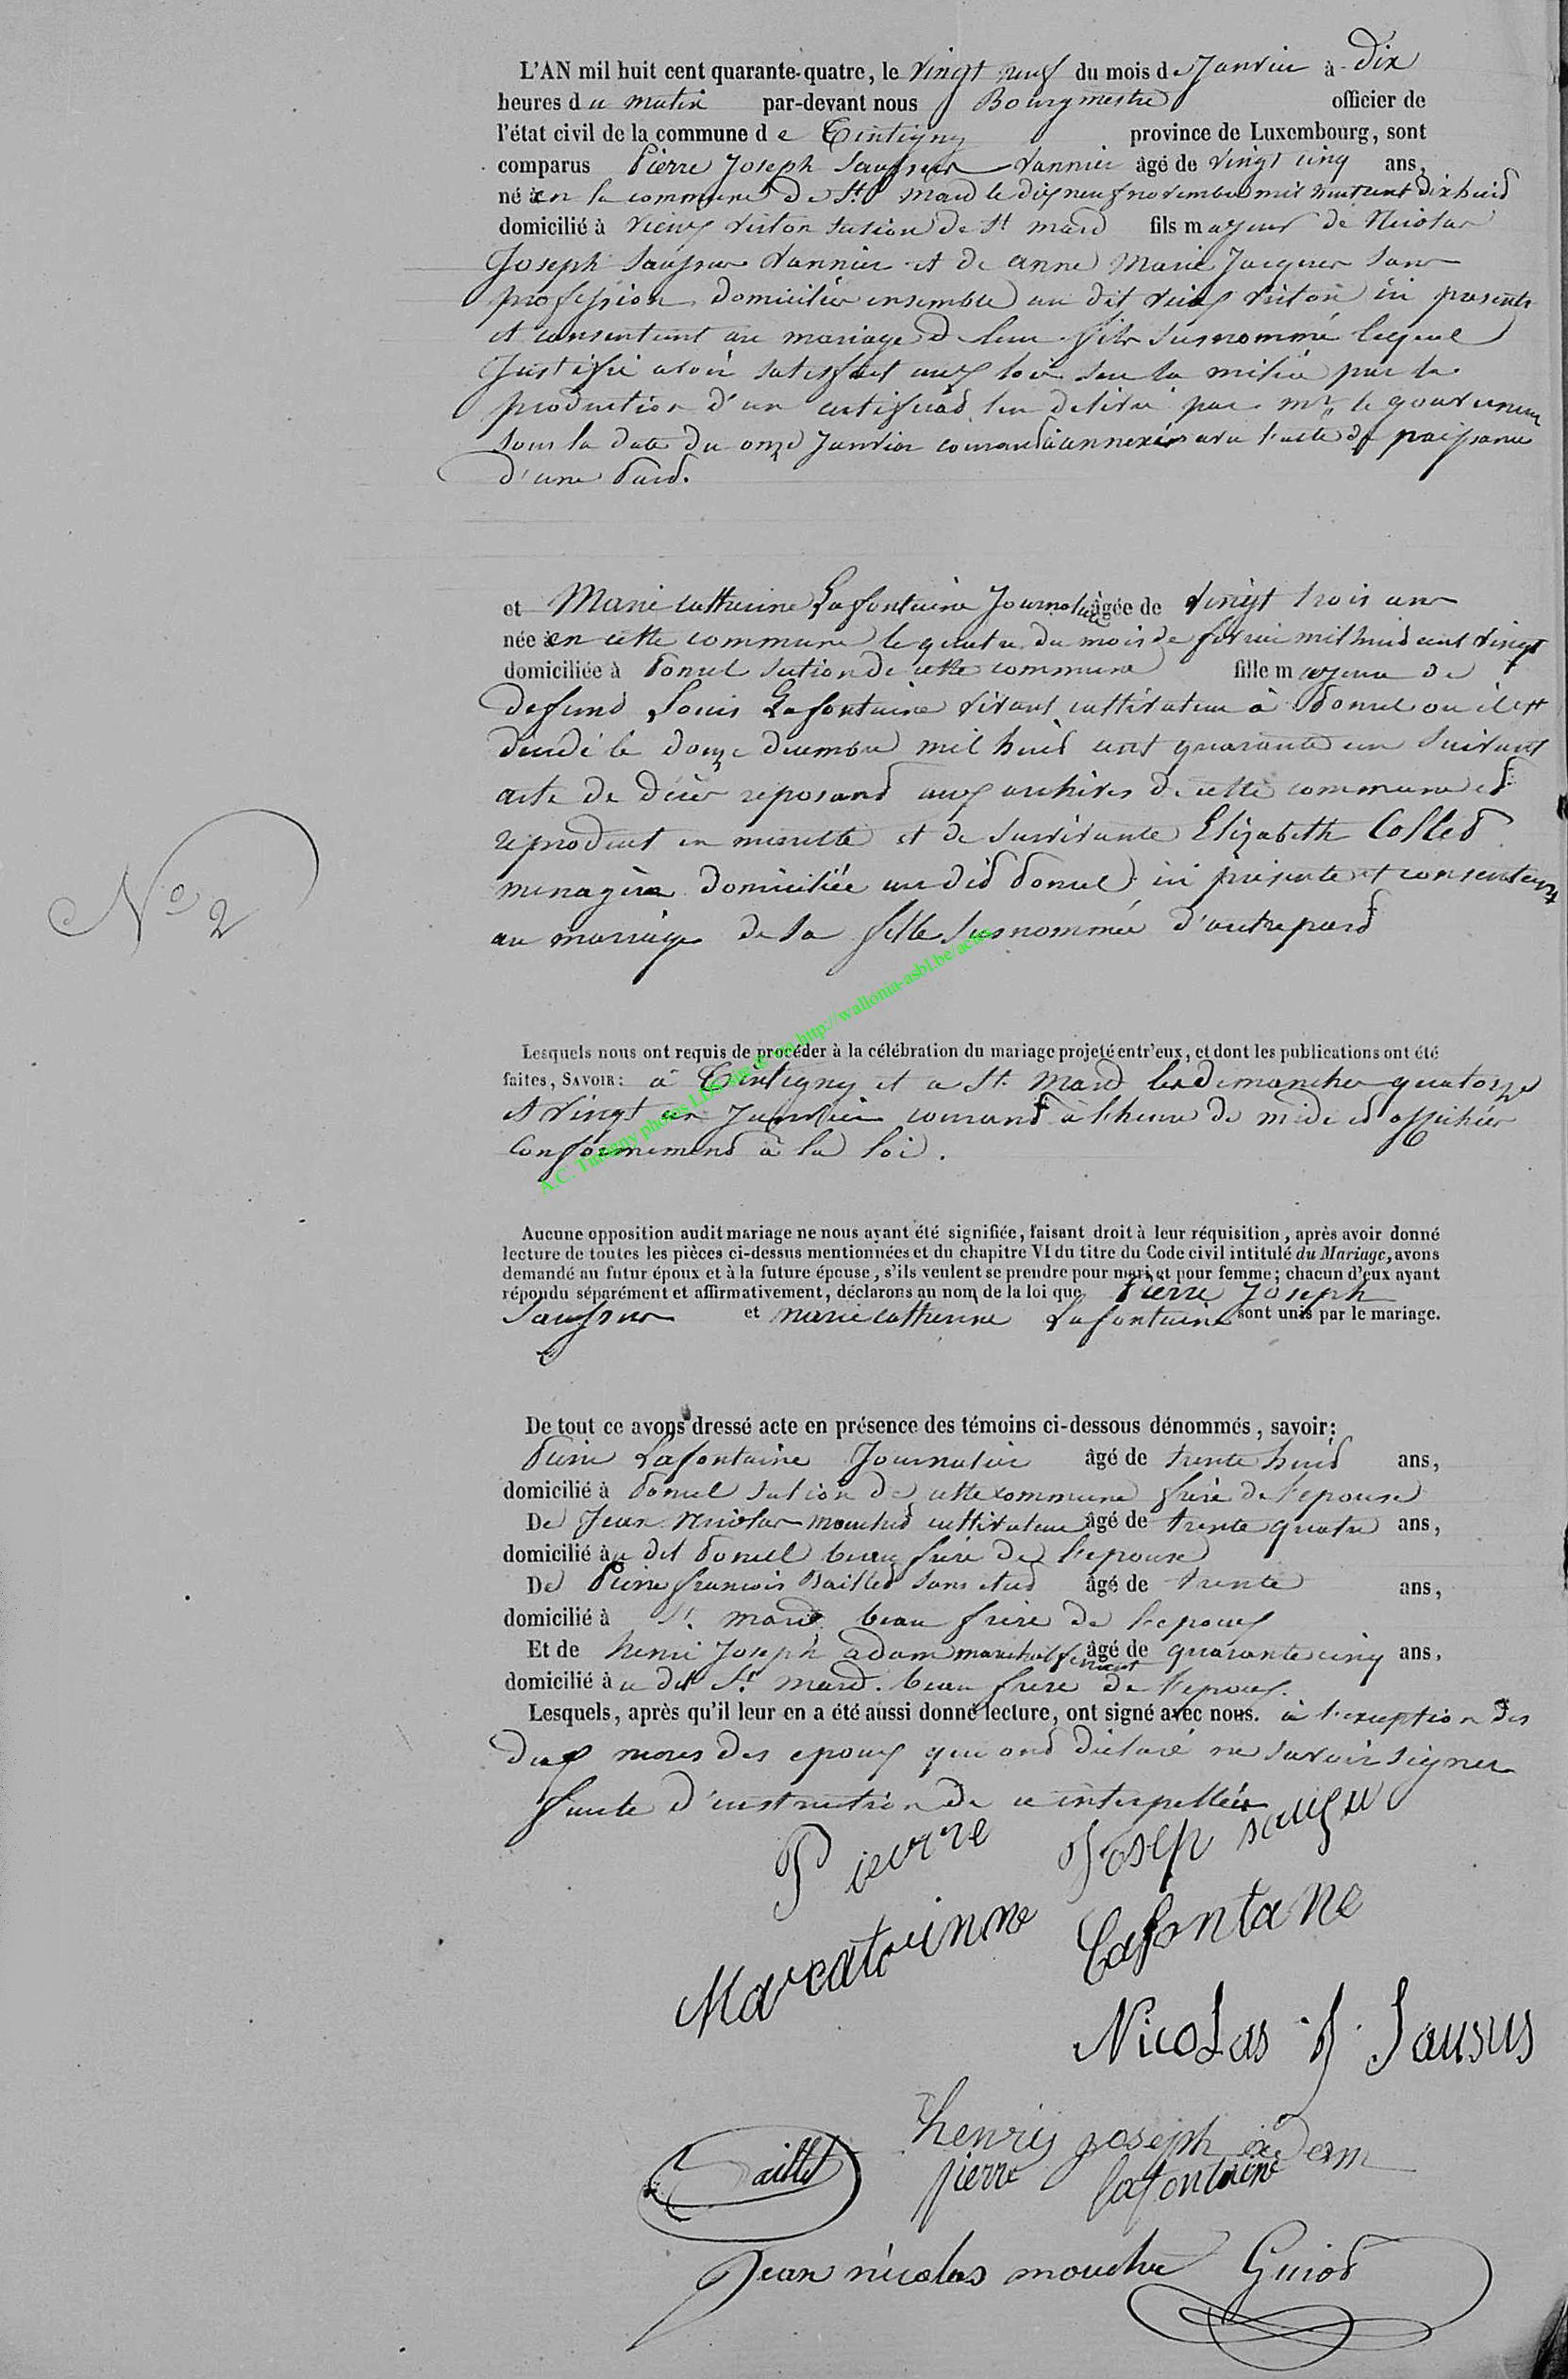 L'AN mil huit cent quarante-quatre, le vingt neuf du mois de Janvier à dix
heures du matin par-devant nous Bourgmestre officier de
l'état civil de la commune de Tintigny province de Luxembourg, sont
comparus Pierre Joseph Sausseus Vannier âgé de vingt cinq ans,
né à en la commune de St. mard le dix neuf novembre mil huit cent dix huit
domicilié à vieux virton section de St mard fils majeur de Nicolas
Joseph Sausseus Vannier et de anne Marie Jacques sans
profession domiciliés ensemble au dit vieux virton ici presents
et consentant au mariage de leur fils susnommé lequel
Justifie avoir satisfait aux lois sur la milice par la
production d'un certificat lui delivré par mr. le gouverneur
sous la date du onze Janvier courant annexés avec l'acte de naissance
d'une part.
et Marie catherine Lafontaine Journalière âgée de vingt trois ans
née à en cette commune le quatre du mois de fevrier mil huit cent vingt
domiciliée à Poncel section de cette commune fille majeure de
defunt Louis Lafontaine vivant cultivateur à Poncel ou il est
décédé le douze decembre mil huit cent quarante un suivant
acte de décès reposant aux archives de cette commune et
reproduit en minutte et de survivante Elizabeth Collet
menagère domiciliée au dit Poncel ici présente et consentant
au mariage de sa fille susnommée d'autre part
N° 2
Lesquels nous ont requis de procéder à la célébration du mariage projeté entr'eux, et dont les publications ont été
faites, SAVOIR: à Tintigny et a St. Mard les dimanches quatorze
et vingt un Janvier courant à l'heure de midi et affichées
Conformement à la loi.
A.C. Tintigny photos LDS via http://wallonia-asbl.be/actes
Aucune opposition audit mariage ne nous ayant été signifiée, faisant droit à leur réquisition, après avoir donné
lecture de toutes les pièces ci-dessus mentionnées et du chapitre VI du titre du Code civil intitulé du Mariage, avons
demandé au futur époux et à la future épouse, s'ils veulent se prendre pour mari et pour femme; chacun d'eux ayant
répondu séparément et affirmativement, déclarons au nom de la loi que Pierre Joseph
Sausseus et marie catherine Lafontaine sont unis par le mariage.
De tout ce avons dressé acte en présence des témoins ci-dessous dénommés, savoir:
Pierre Lafontaine Journalier âgé de trente huit ans,
domicilié à Poncel section de cette commune frère de l'epouse
De Jean Nicolas mouchet cultivateur âgé de trente quatre ans,
domicilié à u dit Poncel beau frère de l'epouse
De Pierre francois Baillet sans etat âgé de trente ans,
domicilié à St. mard beau frère de l'epoux
Et de henri Joseph adam marechal ferrant âgé de quarante cinq ans,
domicilié à u dit St. mard. beau frere de l'epoux.
Lesquels, après qu'il leur en a été aussi donné lecture, ont signé avec nous. à l'exception des
deux meres des epoux qui ont déclaré ne savoir signer
faute d'instruction de ce interpellées
Pieurre Josep sausu
Marcatrinne Lafontane
Nicolas J Sausus
henry joseph adam
Baillet pierre lafontaine
Jean nicolas mouchet Guiot